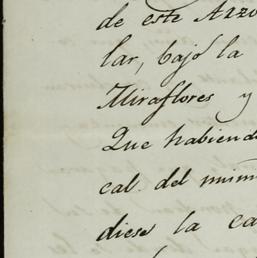 de este Arzo
lar, bajo la
Miraflores y
Que habiend
cal. del mism
diese la ca